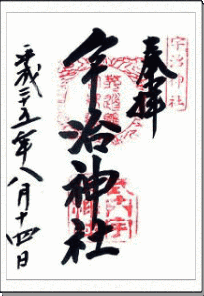 奉拝
宇治神社
宇治神社
平成二十五年八月十四日